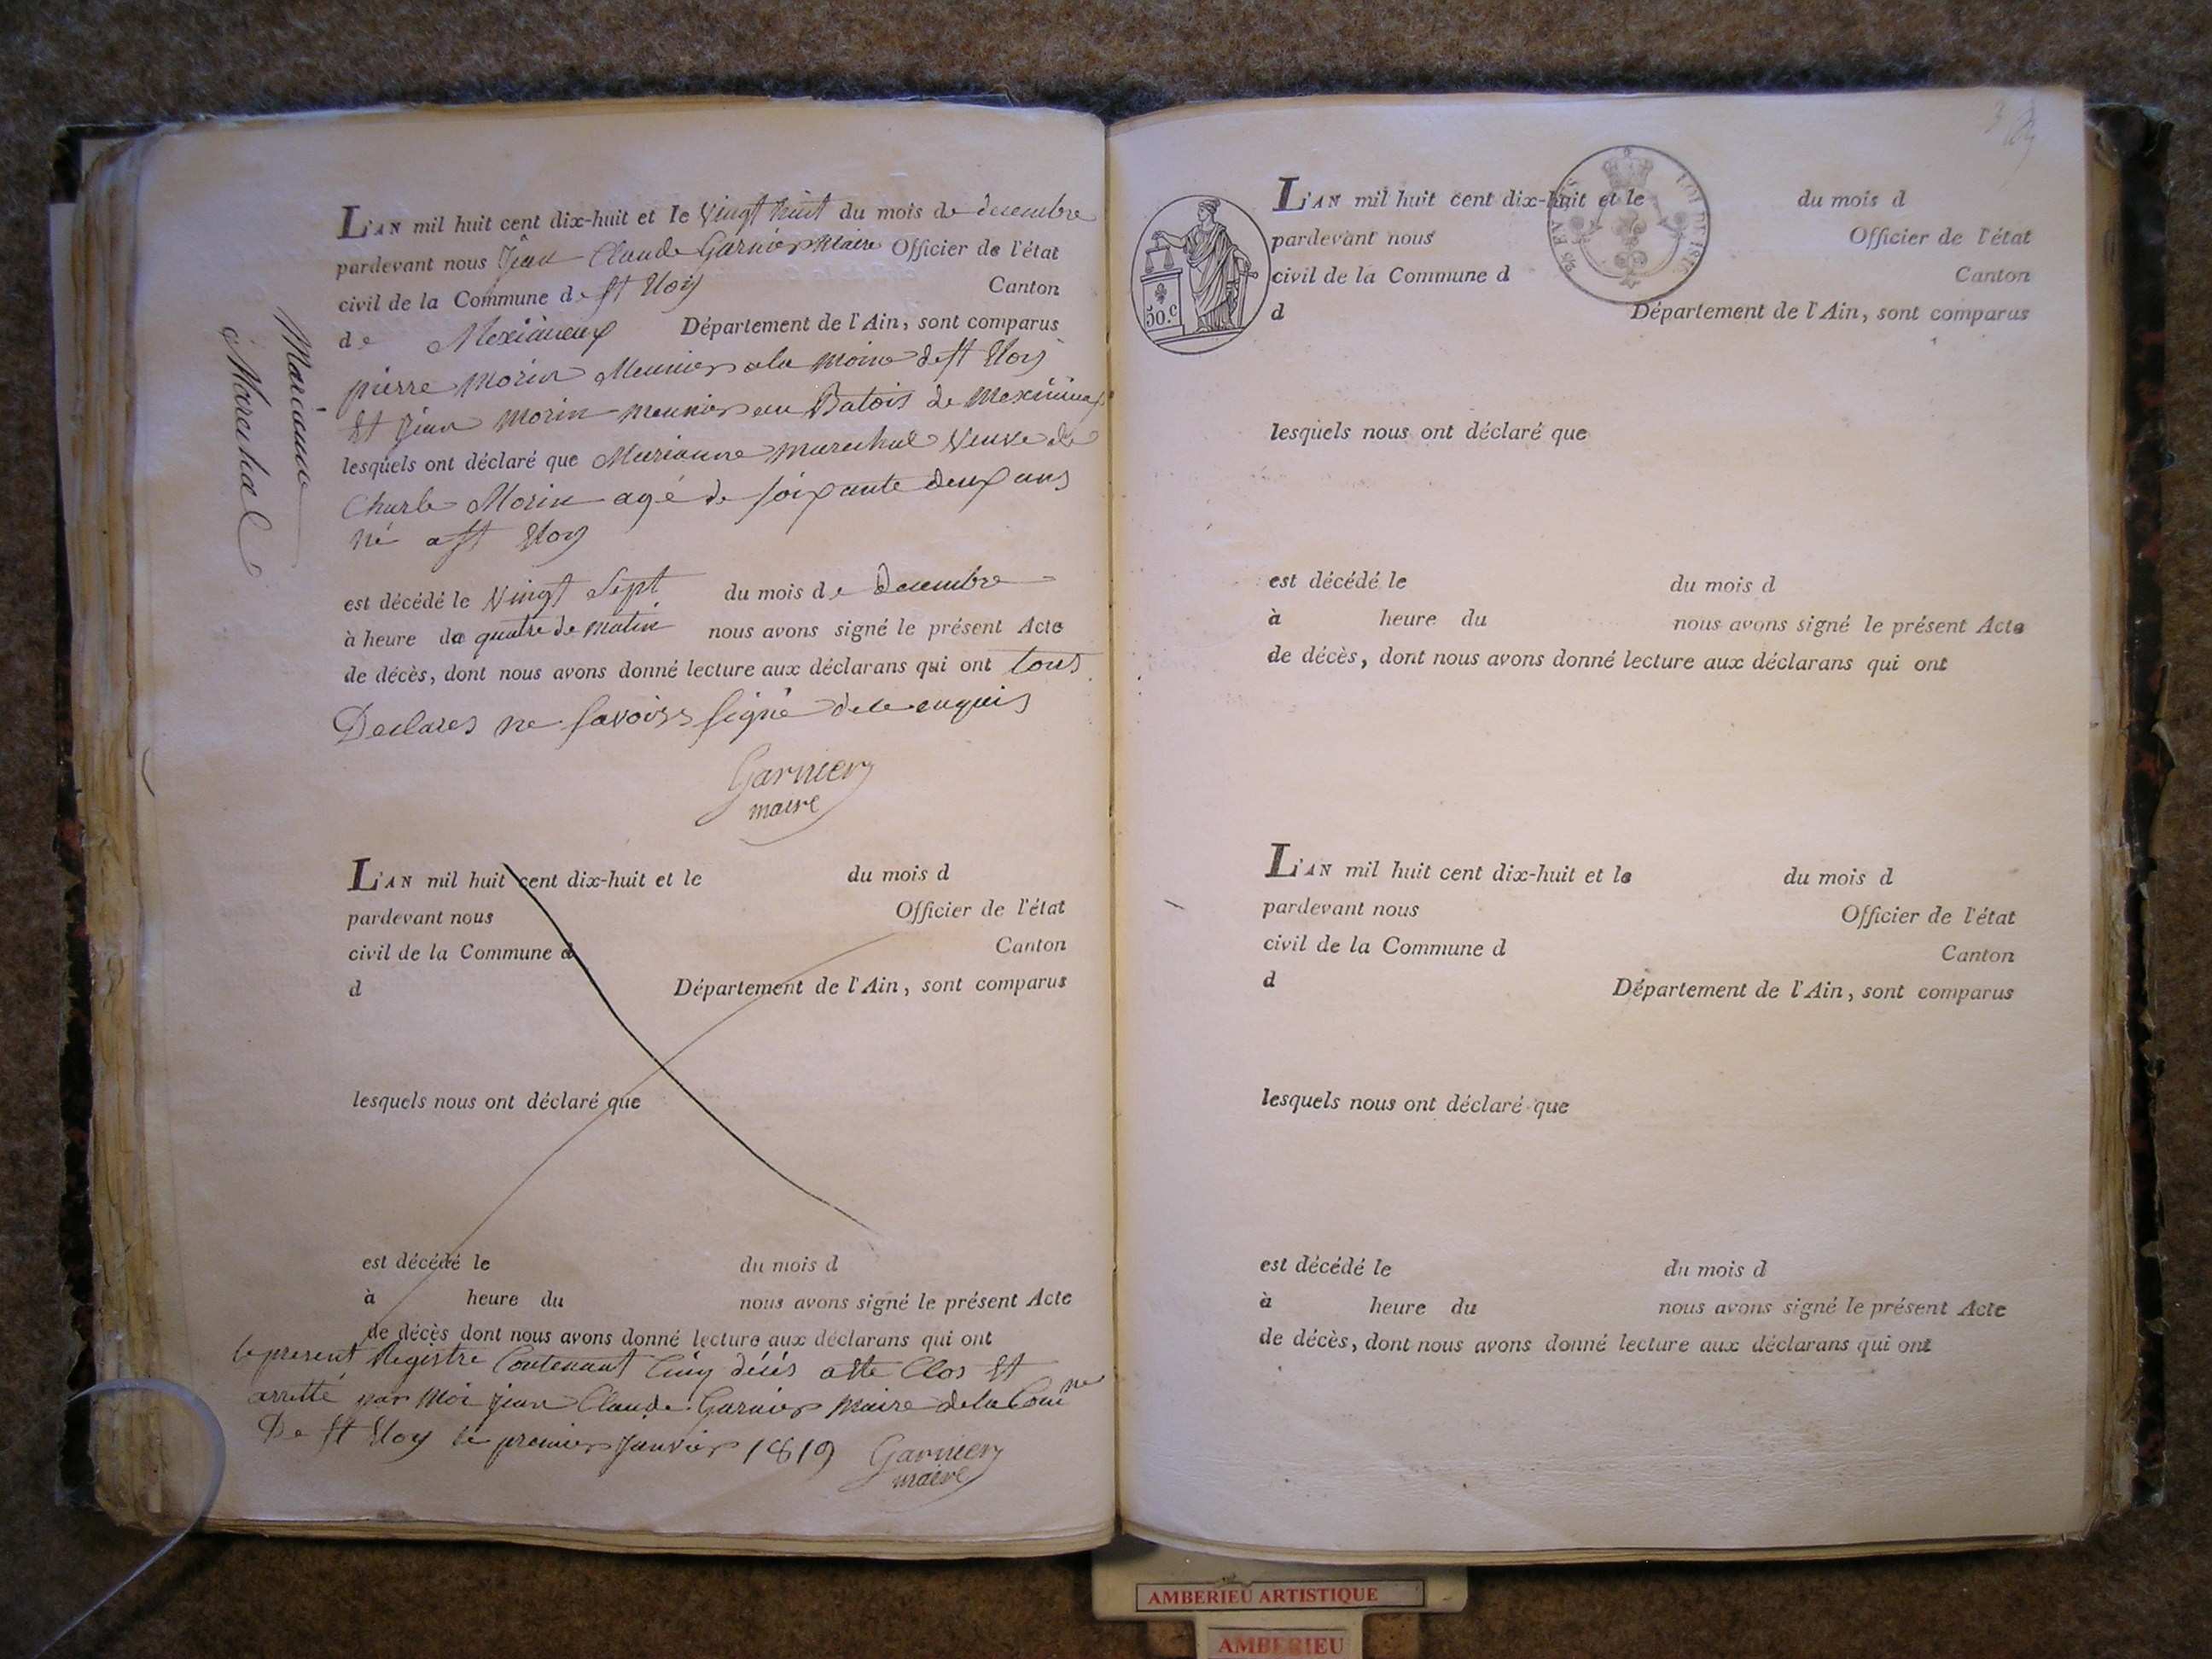 Marianne
Marechal
L'AN mil huit cent dix-huit et le Vingt huit du mois de decembre
pardevant nous Jean Claude Garnier Maire Officier de l'état
civil de la Commune de St Eloy Canton
de Meximieux Département de l'Ain, sont comparus
pierre Morin Meunier a la de St Eloy
Et Jean Morin meunier au Batois de Meximieux
lesquels ont déclaré que Marianne marechal Veuve de
Charle Morin agé de soixante deux ans
né a St Eloy
est décédé le Vingt Sept du mois de Decembre
à heure de quatre de matin nous avons signé le présent Acte
de décès, dont nous avons donné lecture aux déclarans qui ont tous
Declares ne savoirs signé de ce enquis
Garnier
maire
L'AN mil huit cent dix-huit et le du mois d
pardevant nous Officier de l'état
civil de la Commune d Canton
d Département de l'Ain, sont comparus
lesquels nous ont déclaré que
est décédé le du mois d
à heure du nous avons signé le présent Acte
de décès dont nous avons donné lecture aux déclarans qui ont
le present Registre Contenant Cinq décés a ete Clos Et
arretté par Moi jean Claude Garnier Maire de la Comne
De St Eloy le premier Janvier 1819 Garnier
maire
L'AN mil huit cent dix-huit et le du mois d
pardevant nous Officier de l'état
civil de la Commune d Canton
d Département de l'Ain, sont comparus
50.c
LOI DE 1816
lesquels nous ont déclaré que
est décédé le du mois d
à heure du nous avons signé le présent Acte
de décès, dont nous avons donné lecture aux déclarans qui ont
L'AN mil huit cent dix-huit et le du mois d
pardevant nous Officier de l'état
civil de la Commune d Canton
d Département de l'Ain, sont comparus
lesquels nous ont déclaré que
est décédé le du mois d
à heure du nous avons signé le présent Acte
de décès, dont nous avons donné lecture aux déclarans qui ont
AMBERIEU ARTISTIQUE
AMBERIEU